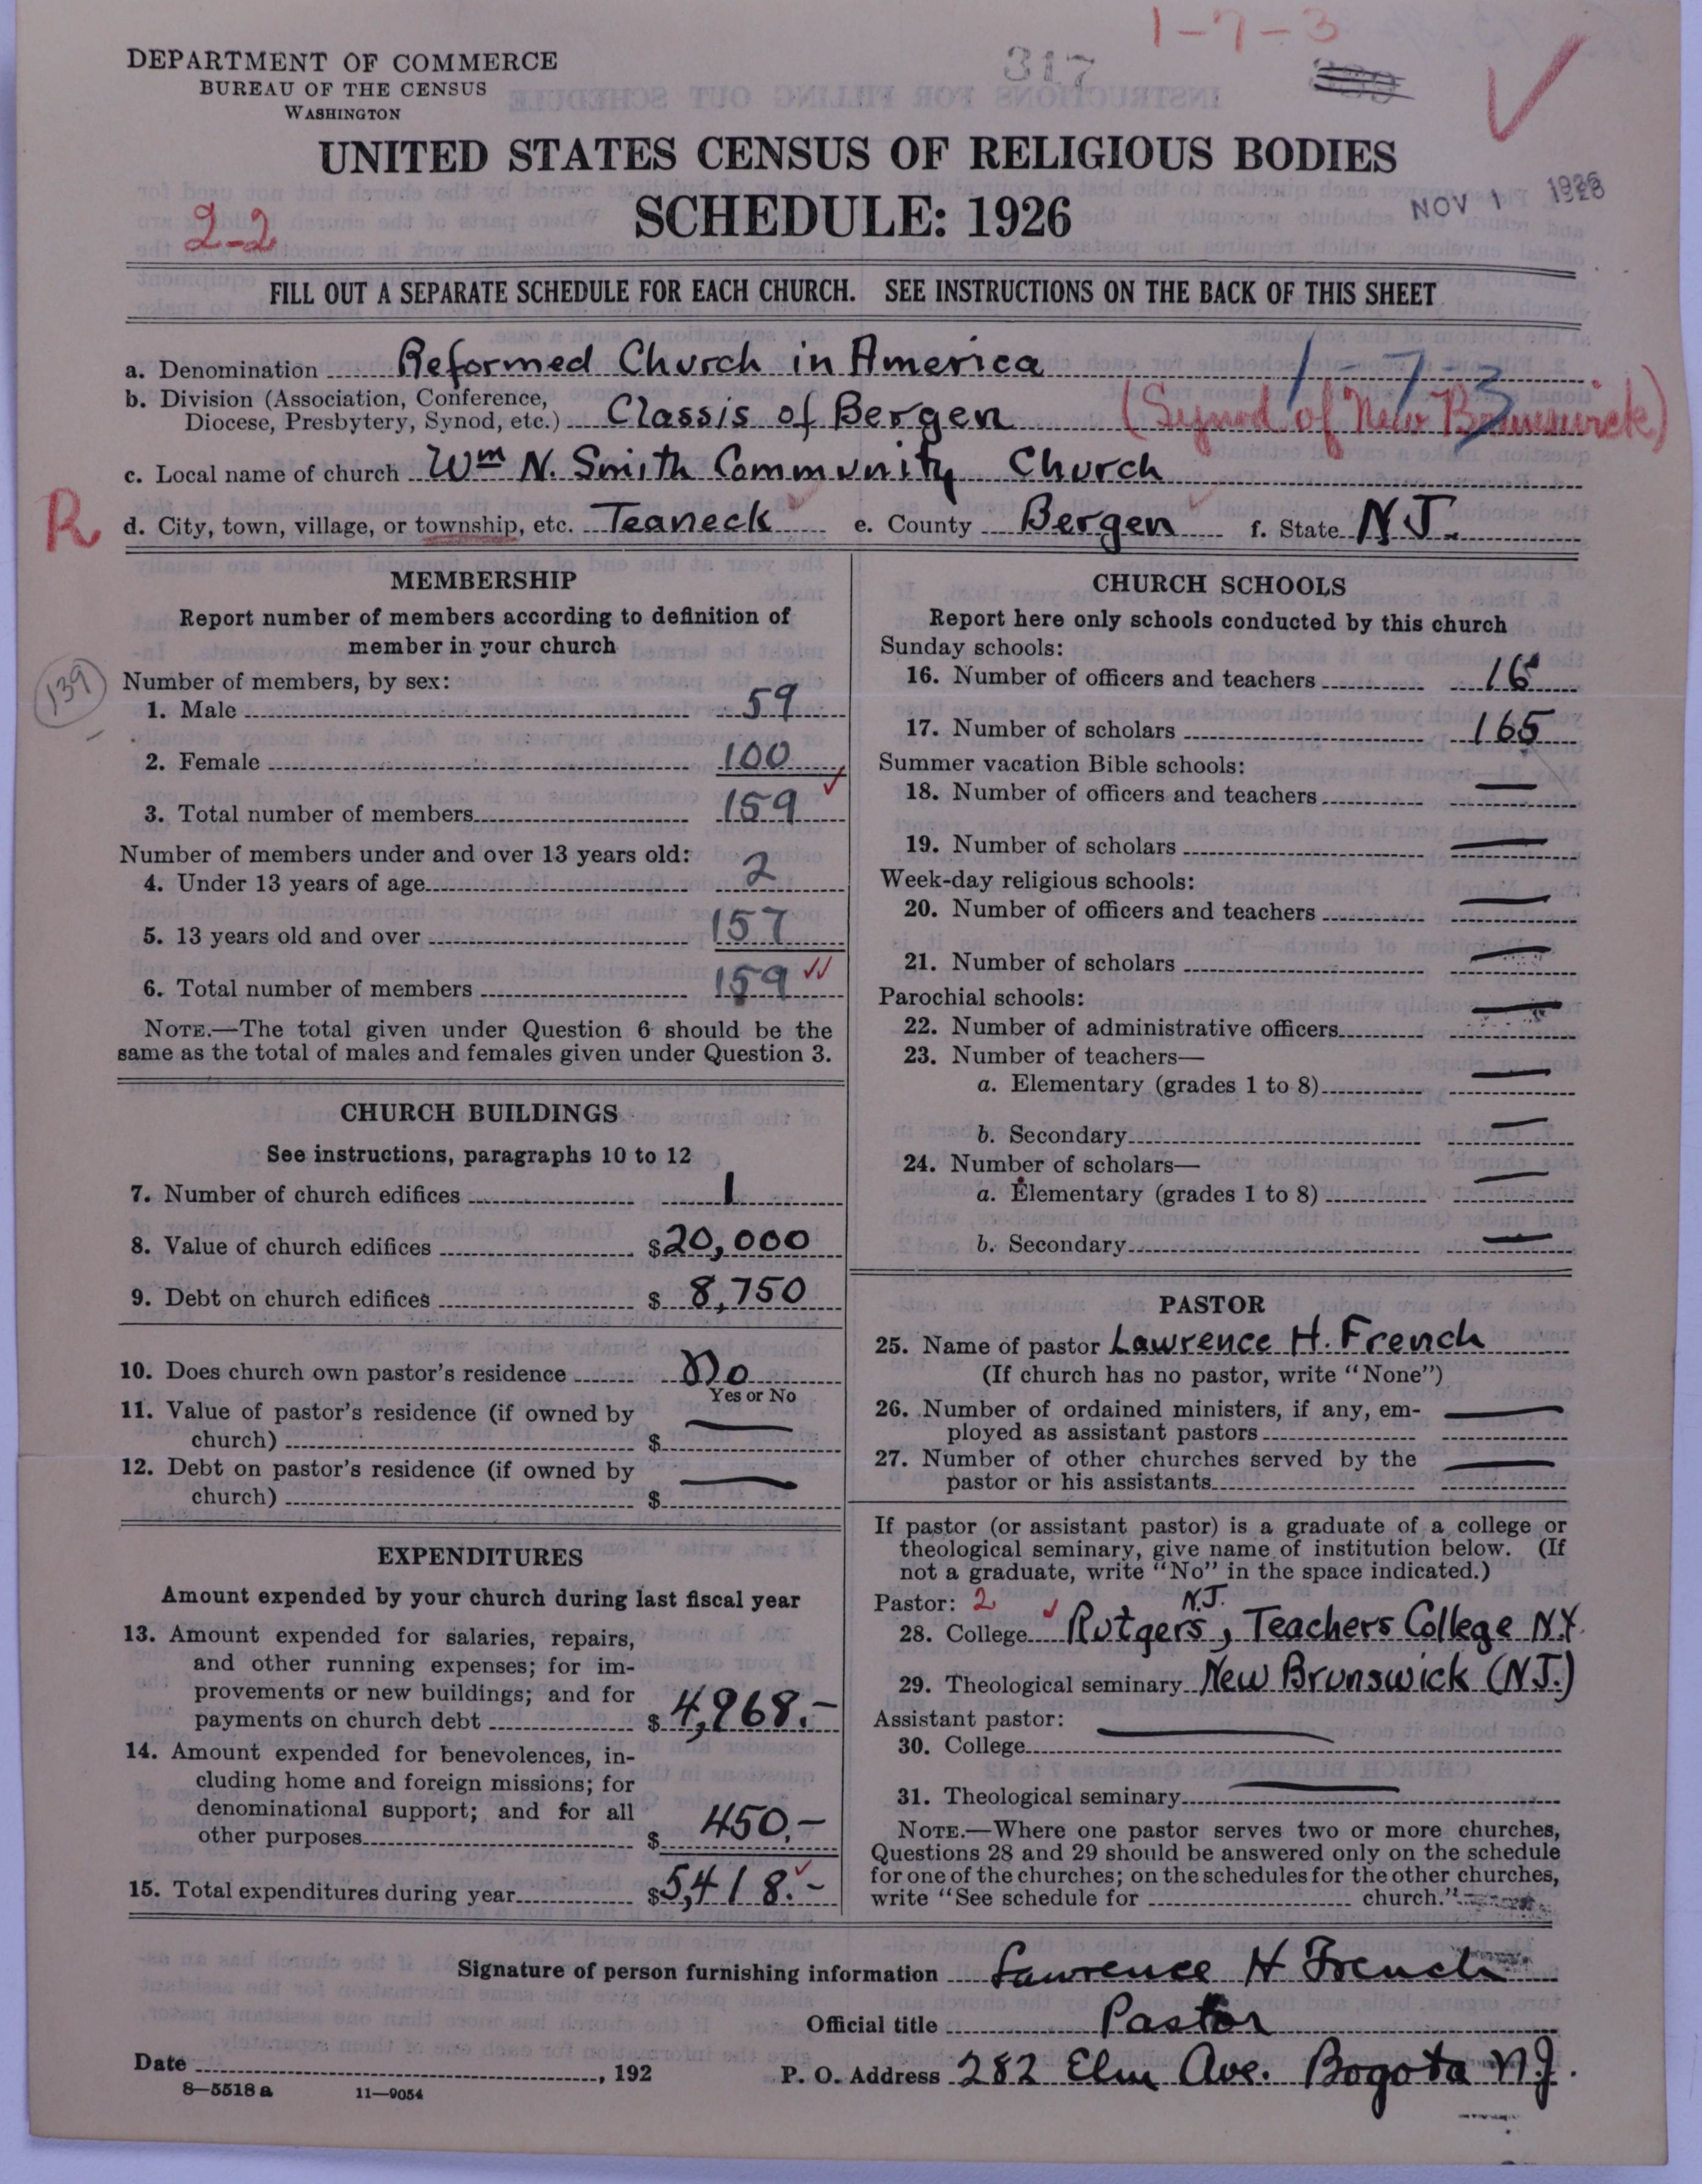 1-7-3
317
DEPARTMENT OF COMMERCE
BUREAU OF THE CENSUS
WASHINGTON
UNITED STATES CENSUS OF RELIGIOUS BODIES
SCHEDULE: 1926
NOV 1 1926
2-2
FILL OUT A SEPARATE SCHEDULE FOR EACH CHURCH. SEE INSTRUCTIONS ON THE BACK OF THIS SHEET
a. Denomination Reformed Church in America 1-7-3
b. Division (Association, Conference,
Diocese, Presbytery, Synod, etc.) Classis of Bergen (Synod of New Brunswick)
c. Local name of church Wm N. Smith Community Church
R
d. City, town, village, or township, etc. Teaneck e. County Bergen f. State N.J.
MEMBERSHIP
Report number of members according to definition of
member in your church
139
Number of members, by sex:
1. Male 59
2. Female 100
3. Total number of members 159
Number of members under and over 13 years old:
4. Under 13 years of age 2
5. 13 years old and over 157
6. Total number of members 159
NOTE.—The total given under Question 6 should be the
same as the total of males and females given under Question 3.
CHURCH BUILDINGS
See instructions, paragraphs 10 to 12
7. Number of church edifices 1
8. Value of church edifices $20,000
9. Debt on church edifices $ 8,750
10. Does church own pastor's residence No
Yes or No
11. Value of pastor's residence (if owned by
church) $ —
12. Debt on pastor's residence (if owned by
church) $ —
EXPENDITURES
Amount expended by your church during last fiscal year
13. Amount expended for salaries, repairs,
and other running expenses; for im-
provements or new buildings; and for
payments on church debt $ 4,968.-
14. Amount expended for benevolences, in-
cluding home and foreign missions; for
denominational support; and for all
other purposes $ 450.-
15. Total expenditures during year $5,418.-
CHURCH SCHOOLS
Report here only schools conducted by this church
Sunday schools:
16. Number of officers and teachers 16
17. Number of scholars 165
Summer vacation Bible schools:
18. Number of officers and teachers —
19. Number of scholars —
Week-day religious schools:
20. Number of officers and teachers —
21. Number of scholars —
Parochial schools:
22. Number of administrative officers —
23. Number of teachers—
a. Elementary (grades 1 to 8) —
b. Secondary —
24. Number of scholars—
a. Elementary (grades 1 to 8) —
b. Secondary —
PASTOR
25. Name of pastor Lawrence H. French
(If church has no pastor, write "None")
26. Number of ordained ministers, if any, em-
ployed as assistant pastors —
27. Number of other churches served by the
pastor or his assistants —
If pastor (or assistant pastor) is a graduate of a college or
theological seminary, give name of institution below. (If
not a graduate, write "No" in the space indicated.)
Pastor: 2 N.J.
28. College Rutgers, Teachers College N.Y.
29. Theological seminary New Brunswick (N.J.)
Assistant pastor:
30. College —
31. Theological seminary —
NOTE.—Where one pastor serves two or more churches,
Questions 28 and 29 should be answered only on the schedule
for one of the churches; on the schedules for the other churches,
write "See schedule for church."
Signature of person furnishing information Lawrence H French
Official title Pastor
Date , 192
P. O. Address 282 Elm Ave. Bogota N.J.
8—5518 a 11—9054